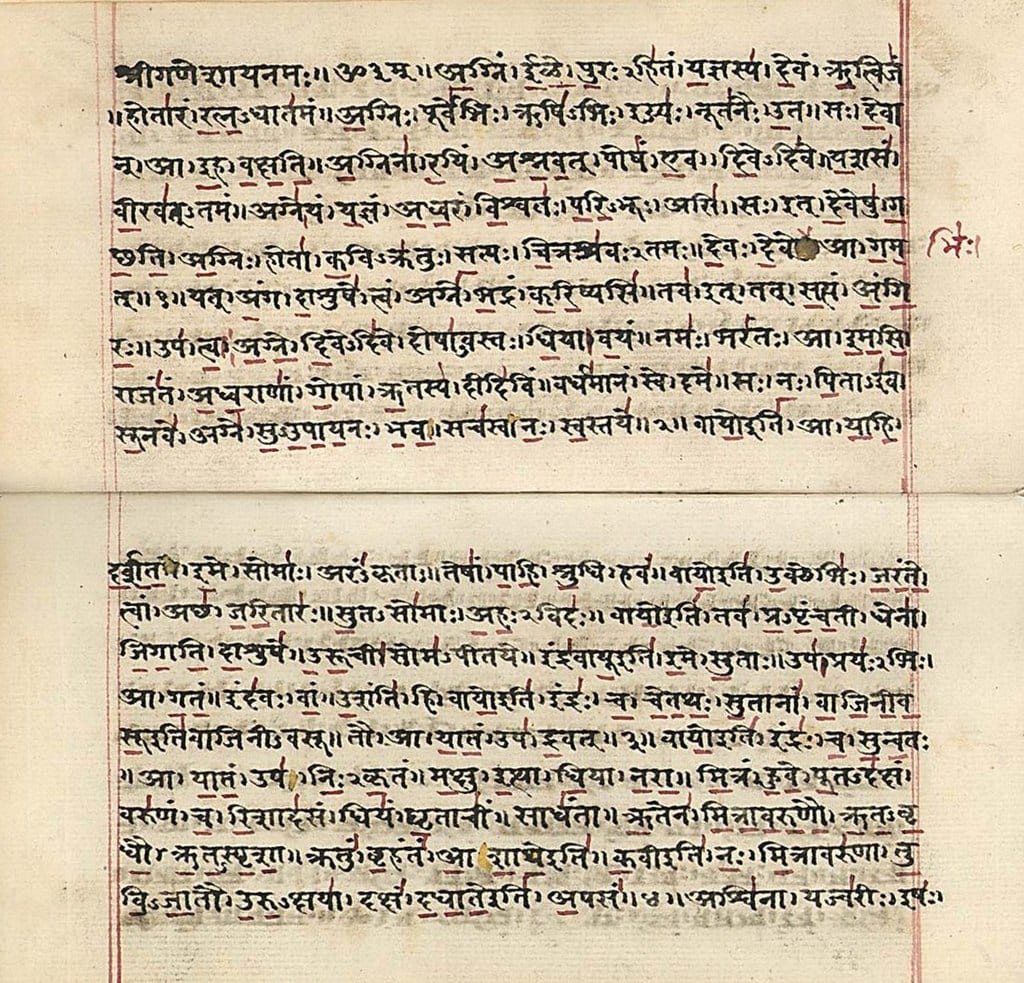 श्रीगणेशायनमः॥ॐ३म्॥अग्निं।ईळे।पुरः२हितं।यज्ञस्य।देवं।ऋत्विजं
॥होतारं।रत्नऽधातमं॥अग्निः।पूर्वेभिः।ऋषिऽभिः।ईड्यः।नूतनैः।उत॥सः।देवा
न्।आ।इह।वक्षति॥अग्निना।रयिं।अश्नवत्।पोषं।एव।दिवेऽदिवे॥यशसं
वीरवत्ऽतमं॥अग्नेयं।यज्ञं।अध्वरं।विश्वतः।परिऽभूः।असि॥सः।इत्।देवेषु।ग
छति।अग्निः।होता।कविऽक्रतुः।सत्यः।चित्रश्रवः२तमः॥देवः।देवे आ।गम भिः।
त्॥१॥यत्।अंग।दाशुषे।त्वं।अग्ने।भद्रं।करिष्यसि॥तव।इत्।तत्।सत्यं।अंगि
रः॥उप।त्वा।अग्ने।दिवेऽदिवे।दोषाऽवस्तः।धिया।वयं॥नमः।भरंतः।आ।इमसि
राजंतं।अध्वराणां।गोपां।ऋतस्य।दीदिविं॥वर्धमानं।स्वे।दमे॥सः।नः।पिताऽइव
सूनवे।अग्ने।सुऽउपायनः।भव॥सचस्व।नः।स्वस्तये॥२॥वायोइति।आ।याहि।
दर्शत।इमे।सोमाः।अरंऽकृताः॥तेषां।पाहि।श्रुधि।हवं॥वायोइति।उक्थेभिः।जरंते
त्वां।अछ।जरितारः॥सुतऽसोमाः।अहः२विदः॥वायोइति।तव।प्रऽपृंचती।धेना
जिगाति।दाशुषे॥उरूची।सोमऽपीतये॥इंद्रवायूइति।इमे।सुताः॥उप।प्रयः२भिः।
आ।गतं॥इंदवः।वां।उशंति।हि।वायोइति।इंद्रः।च।चेतथः।सुतानां।वाजिनीव
सूइतिवाजिनीऽवसू॥तौ।आ।यातं।उप।द्रवत्॥३॥वायोइति।इंद्रः।च।सुन्वतः
॥आ।यातं।उप।निः२कृतं॥मक्षु।इत्था।धिया।नरा॥मित्रं।हुवे।पूतऽदक्षं
वरुणं।च।रिशादसं।धियं।घृताचीं॥साधंता॥ऋतेन।मित्रावरुणौ।ऋतऽवृ
धौ।ऋतऽस्पृशा॥क्रतुं।बृहंतं।आशाथेइति॥कवीइति।नः।मित्रावरुणा।तु
विऽजातौ।उरुऽक्षया।दक्षं।दधातेइति।अपसं॥४॥अश्विना।यज्वरीः।इषः।